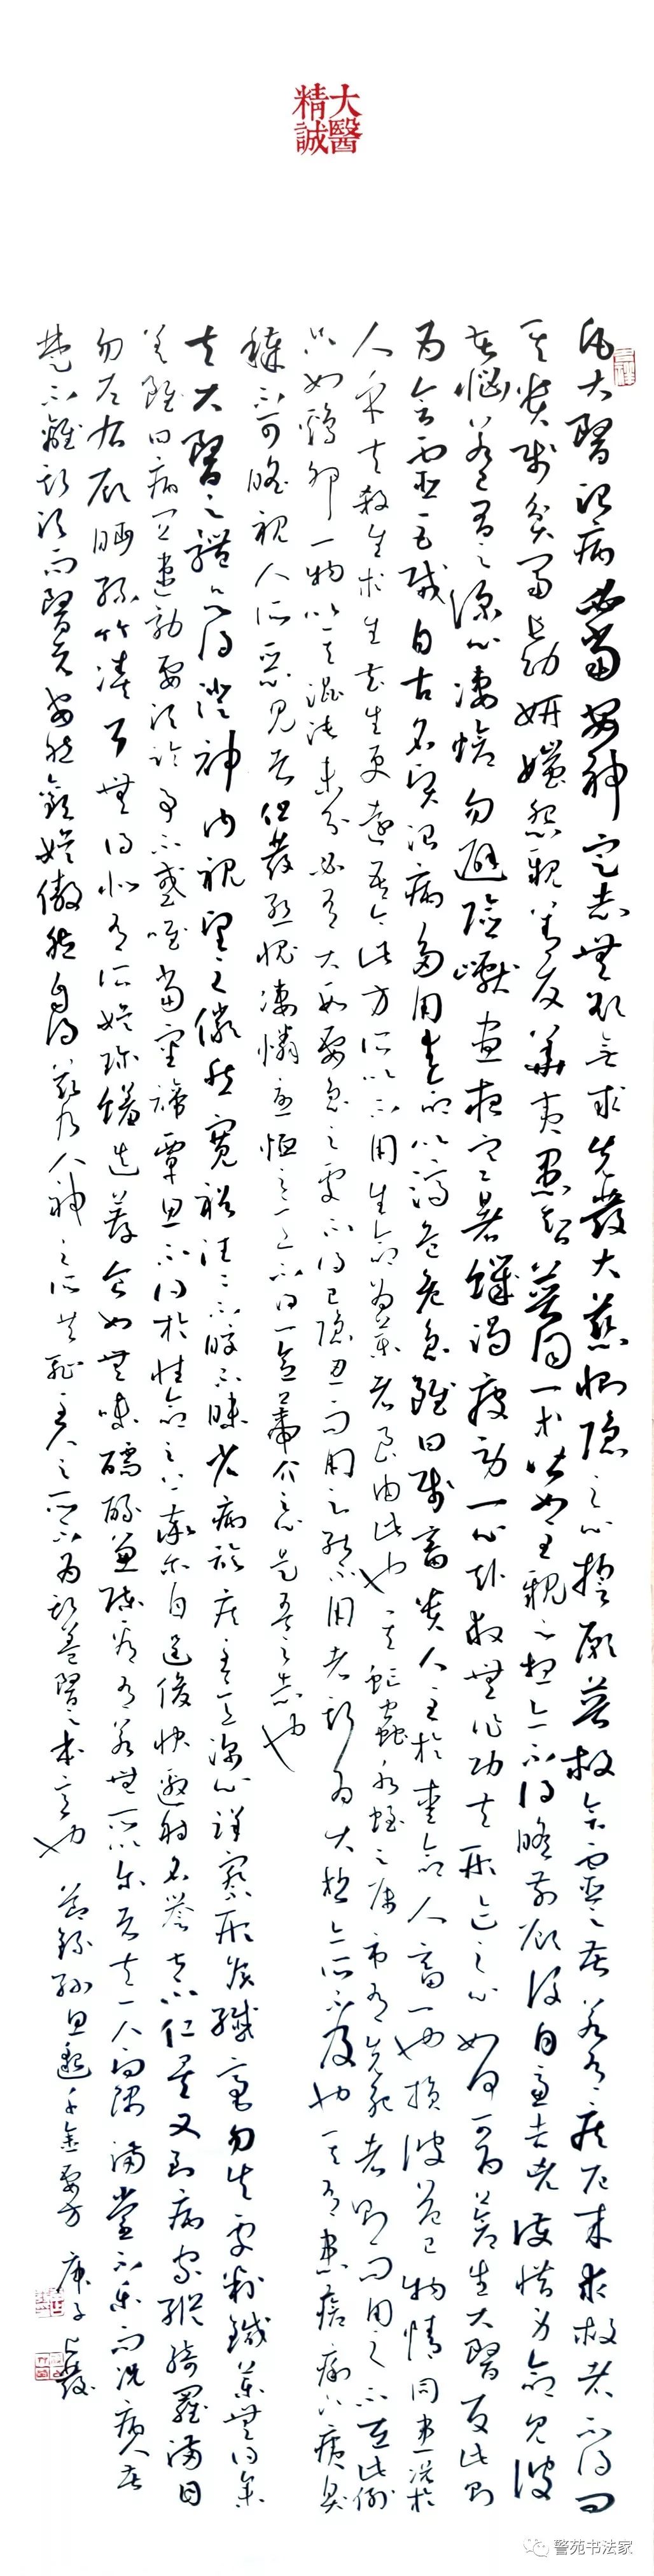 大醫
精誠
凡大醫治病必當安神定志無欲無求先發大慈惻隱之心誓願普救含靈之苦若有疾厄來求救者不得問
其貴賤貧富長幼妍媸怨親善友華夷愚智普同一等皆如至親之想亦不得瞻前顧後自慮吉凶護惜身命見彼
苦惱若己有之深心悽愴勿避險巇晝夜寒暑飢渴疲勞一心赴救無作功夫形跡之心如此可為蒼生大醫反此則
為含靈巨賊自古名賢治病多用生命以濟危急雖曰賤畜貴人至於愛命人畜一也損彼益己物情同患況於
人乎夫殺生求生去生更遠吾今此方所以不用生命為藥者良由此也其虻蟲水蛭之屬市有先死者則而用之不在此例
只如鷄卵一物以其混沌未分必有大段要急之處不得已隱忍而用之能不用者斯為大哲亦所不及也其有患瘡痍下痢臭
穢不可瞻視人所惡見者但發慙愧悽憐憂恤之意不得一念蒂芥之心是吾之志也
夫大醫之體欲得澄神內視望之儼然寬裕汪汪不皎不昧省病診疾至意深心詳察形候纖毫勿失處判鍼藥無得參
差雖曰病宜速救要須臨事不惑唯當審諦覃思不得於性命之上率爾自逞俊快邀射名譽甚不仁矣又到病家縱綺羅滿目
勿左右顧眄絲竹湊耳無得似有所娛珍羞迭薦食如無味醽醁兼陳看有若無所以爾者夫一人向隅滿堂不樂而況病人苦
楚不離斯須而醫者安然懽娛傲然自得茲乃人神之所共恥至人之所不為斯蓋醫之本意也 節錄孫思邈千金要方 庚子
警苑书法家